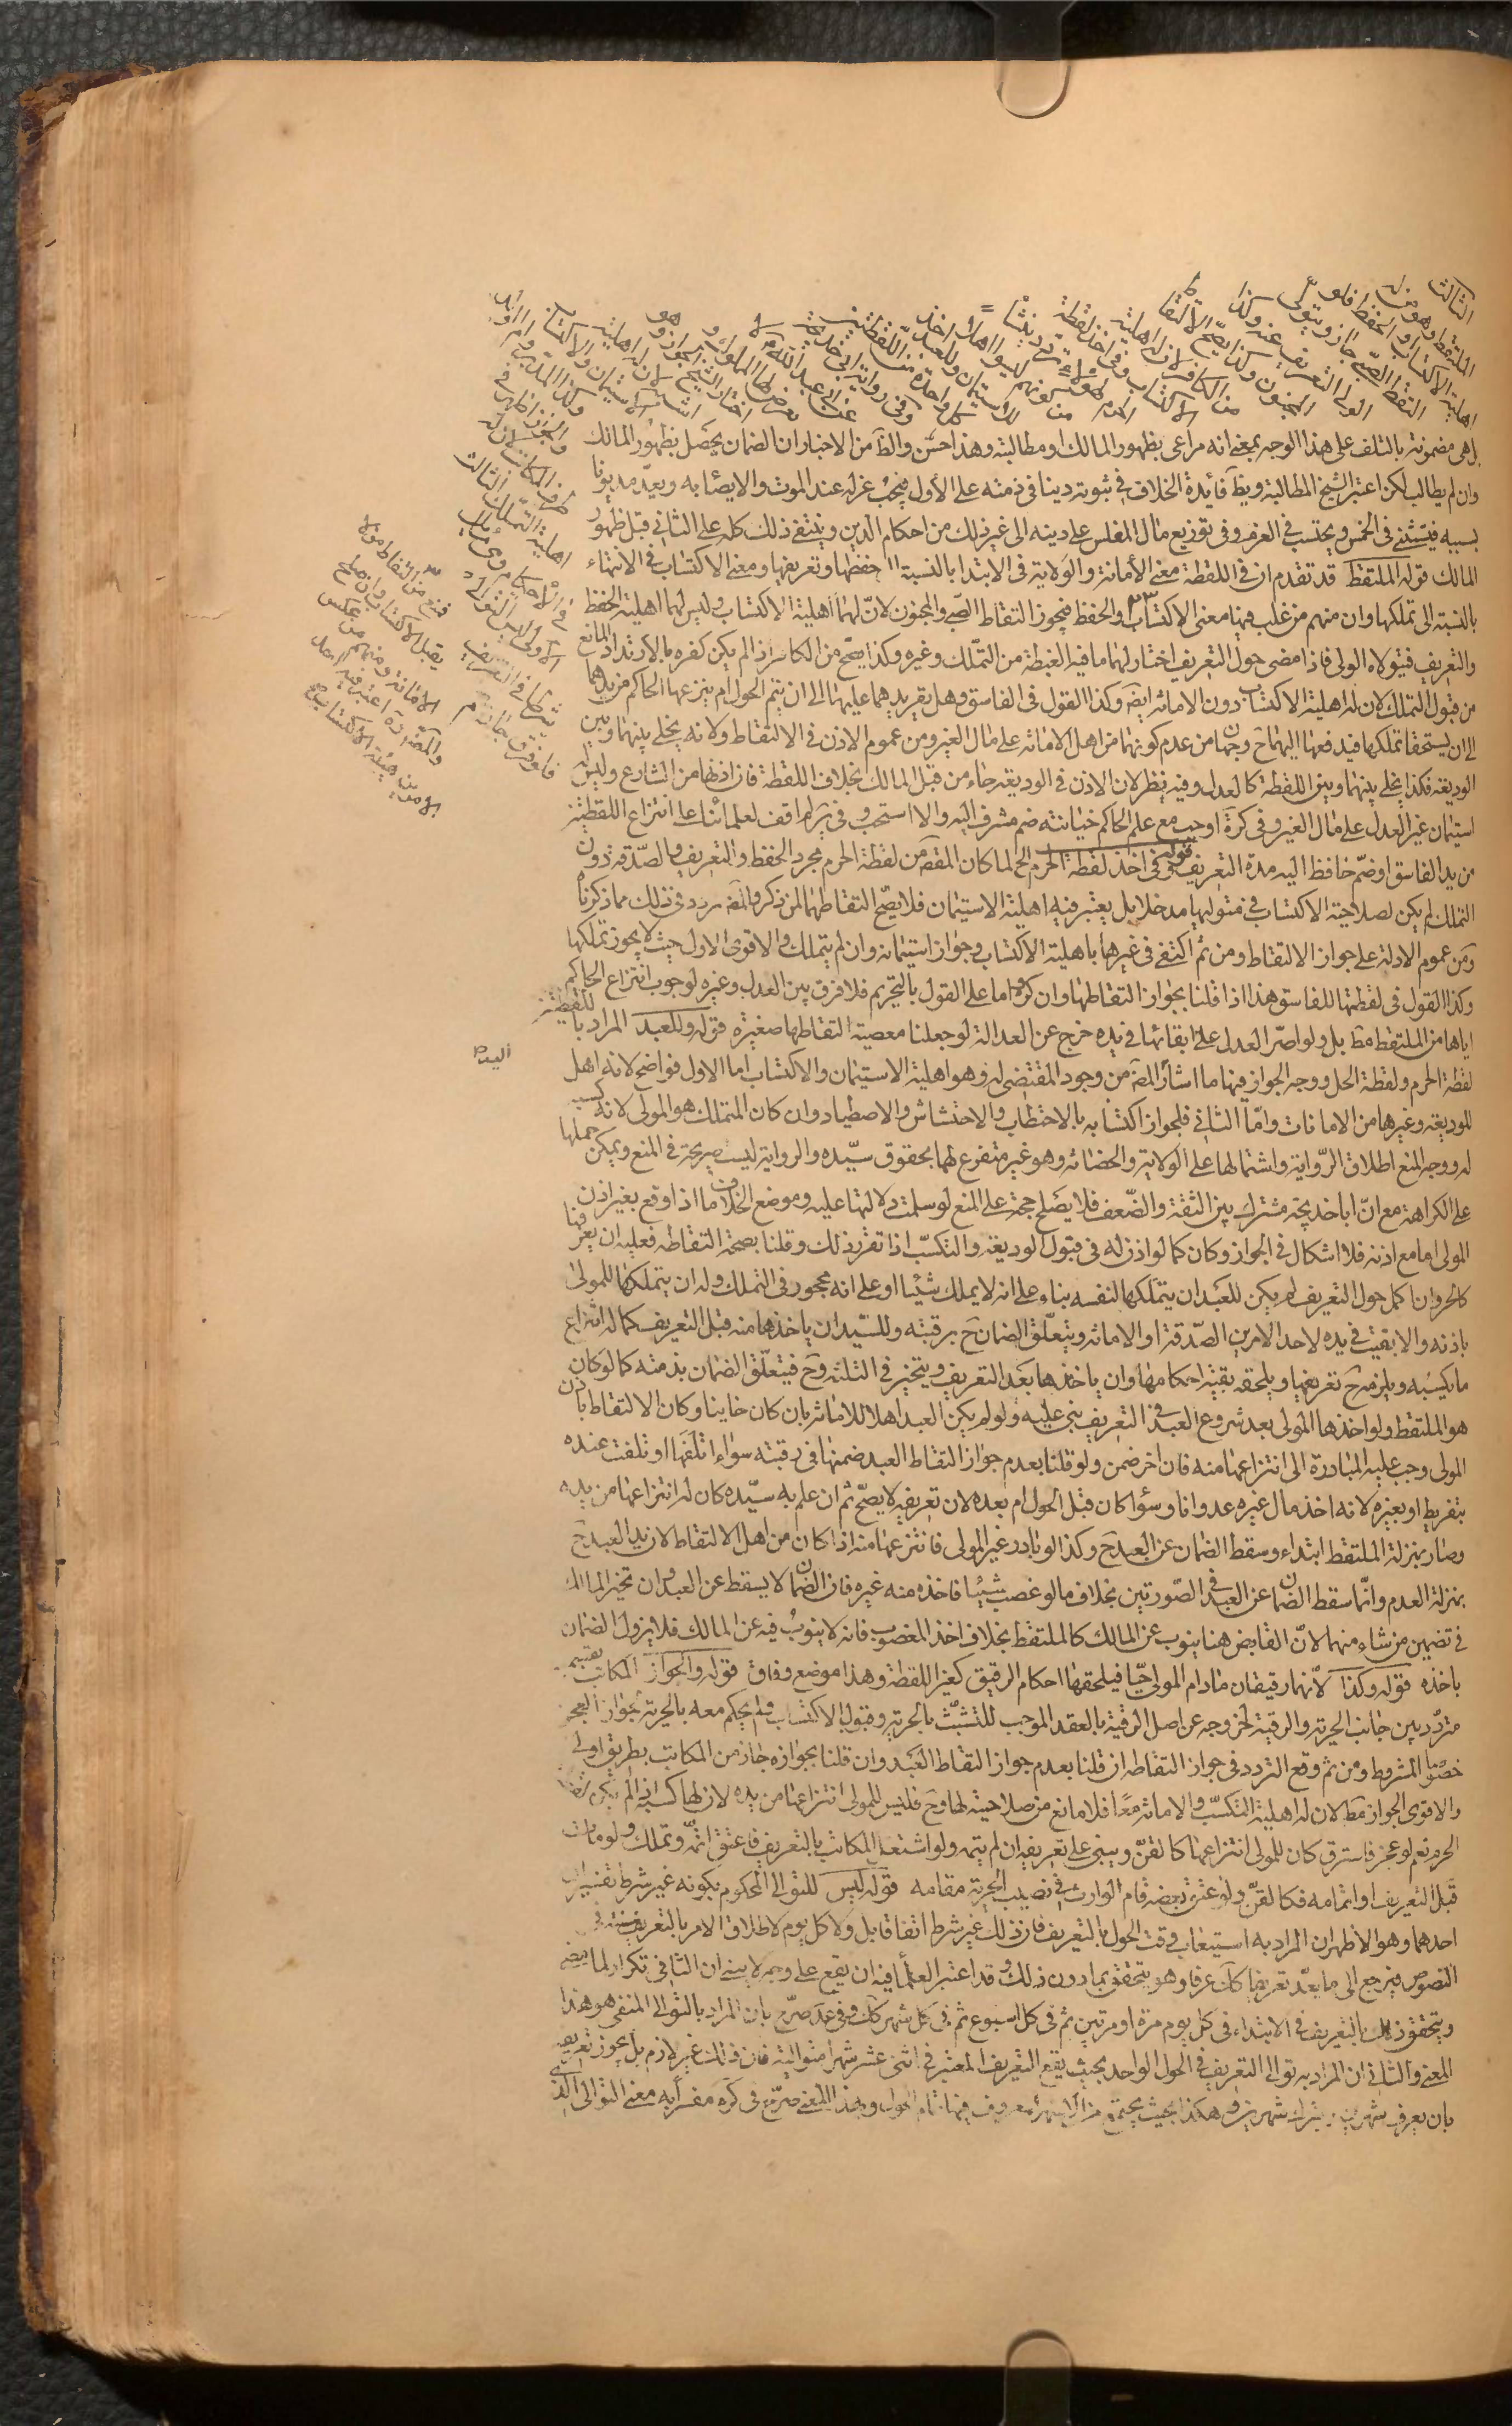 الثالث
الملتقط وهو من له
اهلية الاكتساب او الحفظ فلو
التقط الصبي جاز ويتولى
الولي التعريف عنه وكذا
المجنون وكذا يصح الالتقاط
من الكافر لان له اهلية
الاكتساب وفي اخذ لقطة
الحرم لهؤلاء تردد ينشأ
من كونهم ليسوا اهلا
للاستيمان وللعبد اخذ
كل واحدة من اللقطتين
وفي رواية ابي خديجة
عن ابي عبد الله لا
يعرض لها المملوك و
اختار الشيخ الجواز وهو
اشبه لان له اهلية
الاستيمان والاكتساب
وكذا المدبر وام الولد
والجواز اظهر في
طرف المكاتب لان له
اهلية التملك الثالث
في الاحكام وهي مسائل
الاولى ليس التوالي
شرطا في التعريف
فلو فرق جاز
بل هي مضمونة بالتلف على هذا الوجه بمعنى انه مراعى بظهور المالك او مطالبته وهذا حسن والظ من الاخبار ان الضمان يحصل بظهور المالك
وان لم يطالب لكن اعتبر الشيخ المطالبة ويظ فائدة الخلاف في ثبوته دينا في ذمته على الأول فيجب عزله عند الموت والايصاء به ويعد مديونا
بسببه فيستثنى في الخمس ويحتسب في الغرم وفي توزيع مال المفلس على دينه الى غير ذلك من احكام الدين وينتفي ذلك كله على الثاني قبل ظهور
المالك قوله الملتقط قد تقدم ان في اللقطة معنى الأمانة والولاية في الابتدا بالنسبة الى حفظها وتعريفها ومعنى الاكتساب في الانتهاء
بالنسبة الى تملكها وان منهم من غلب فيها معنى الاكتساب والحفظ فيجوز التقاط الصبي والمجنون لانّ لهما اهلية الاكتساب وليس لهما اهلية الحفظ
والتعريف فيتولاه الولي فاذا مضى حول التعريف اختار لهما ما فيه الغبطة من التملك وغيره وكذا يصح من الكافر اذ لم يكن كفره بالارتداد المانع
من قبول التملك لان له اهلية الاكتساب دون الامانه ايضا وكذا القول في الفاسق وهل يقر يدهما عليها الى ان يتم الحول ام ينزعها الحاكم من يدهما
الى ان يستحقا تملكها فيدفعها اليهما ح وجهان من عدم كونهما من اهل الامانه على مال الغير ومن عموم الاذن في الالتقاط ولانه يخلى بينهما وبين
الوديعة فكذا يخلى بينهما وبين اللقطة كالعدل وفيه نظر لان الاذن في الوديعة جاء من قبل المالك بخلاف اللقطة فان اذنها من الشارع وليس له
استيمان غير العدل على مال الغير وفي كرة اوجب مع علم الحاكم خيانته ضم مشرف اليه والا استحب وفي لم اقف لعلمائنا على انتزاع اللقطة
من يد الفاسق او ضم حافظ اليه مدة التعريف قوله وفي اخذ لقطة الحرم الخ لما كان المقصد من لقطة الحرم مجرد الحفظ والتعريف والصدقة دون
التملك لم يكن لصلاحية الاكتساب في متوليها مدخلا بل يعتبر فيه اهلية الاستيمان فلا يصح التقاطها لمن ذكر والمصنف تردد في ذلك مما ذكرناه
ومن عموم الادلة على جواز الالتقاط ومن ثم اكتفى في غيرها باهلية الاكتساب وجواز استيمانه وان لم يتملك والاقوى الاول حيث لا يجوز تملكها
وكذا القول في لقطتها للفاسق هذا اذا قلنا بجواز التقاطها وان كره اما على القول بالتحريم فلا فرق بين العدل وغيره لوجوب انتزاع الحاكم
اياها من الملتقط مط بل ولو اصر العدل على ابقائها في يده خرج عن العدالة لو جعلنا معصية التقاطها صغيرة قوله وللعبد المراد باللقطتين
لقطة الحرم ولقطة الحل ووجه الجواز فيهما ما اشار المص من وجود المقتضى له وهو اهلية الاستيمان والاكتساب اما الاول فواضح لانه اهل
للوديعة وغيرها من الامانات وامّا الثاني فلجواز اكتسابه بالاحتطاب والاحتشاش والاصطياد وان كان المتملك هو المولى لانه كسبه
له ووجه المنع اطلاق الرواية واشتمالها على الولاية والحضانه وهو غير متفرغ لهما بحقوق سيّده والرواية ليست صريحة في المنع ويمكن حملها
على الكراهة مع انّ ابا خديجة مشترك بين الثقة والضعف فلا يصلح حجة على المنع لو سلمت دلالتها عليه وموضع الخلاف ما اذا وقع بغير اذن
المولى اما مع اذنه فلا اشكال في الجواز وكان كما لو اذن له في قبول الوديعة والتكسب اذا تقرر ذلك وقلنا بصحة التقاطه فعليه ان يعرفها
كالحر وان اكمل حول التعريف لم يكن للعبد ان يتملكها لنفسه بناء على انه لا يملك شيئا او على انه محجور في التملك وله ان يتملكها للمولى
باذنه والا بقيت في يده لاحد الامرين الصّدقة او الامانه ويتعلق الضمان ح برقبته وللسيد ان ياخذها منه قبل التعريف كما له انتزاع
ما يكسبه ويلزمه ح تعريفها ويلحقه بقيّة احكامها وان ياخذها بعد التعريف ويتخير في الثلثة وح فيتعلق الضمان بذمته كما لو كان
هو الملتقط ولو اخذها المولى بعد شروع العبد في التعريف بنى عليه ولو لم يكن العبد اهلا للامانة بان كان خاينا وكان الالتقاط باذن
المولى وجب عليه المبادرة الى انتزاعها منه فان اخر ضمن ولو قلنا بعدم جواز التقاط العبد ضمنها في رقبته سواء اتلفها او تلفت عنده
بتفريط او بغيره لانه اخذ مال غيره عدوانا وسوا كان قبل الحول ام بعده لان تعريفه لا يصحّ ثم ان علم به سيّده كان له انتزاعها من يده
وصار بمنزلة الملتقط ابتداء وسقط الضمان عن العبد ح وكذا لو بادر غير المولى فانتزعها منه اذا كان من اهل الالتقاط لان يد العبد ح
بمنزلة العدم وانّما سقط الضمان عن العبد في الصورتين بخلاف ما لو غصب شيئا فاخذه منه غيره فان الضمان لا يسقط عن العبد وان تخير المالك
في تضمين من شاء منهما لانّ القابض هنا ينوب عن المالك كالملتقط بخلاف اخذ المغصوب فانه لا ينوب فيه عن المالك فلا يزول الضمان
باخذه قوله وكذا لانّهما رقيقان ما دام المولى حيّا فيلحقها احكام الرقيق كغير اللقطة وهذا موضع وفاق قوله والجواز المكاتب
متردّد بين جانب الحرية والرقية لخروجه عن اصل الرقية بالعقد الموجب للتشبث بالحرية وقبول الاكتساب ولم يحكم معه بالحرية لجواز العجز
خصوصا المشروط ومن ثم وقع التردد في جواز التقاطه ان قلنا بعدم جواز التقاط العبد وان قلنا بجوازه جاز من المكاتب بطريق اولى
والاقوى الجواز مط لان له اهلية التكسب والامانه معًا فلا مانع من صلاحيته لها وح فليس للمولى انتزاعها من يده لان لها كسبه ان لم يكن لقطة
الحرم نعم لو عجز فاسترق كان للمولى انتزاعها كالقن ويبنى على تعريفه ان لم يتمه ولو اشتغل المكاتب بالتعريف فاعتق اتمّه وتملك ولو مات
قبل التعريف او اتمامه فكالقنّ ولو عتق بعضه قام الوارث في نصيب الحرية مقامه قوله ليس للتوالي المحكوم بكونه غير شرط تفسيران
احدهما وهو الاظهر ان المراد به استيعاب وقت الحول بالتعريف فان ذلك غير شرط اتفاقا بل ولا كل يوم لاطلاق الامر بالتعريف سنة في
النصوص فيرجع الى ما يعدّ تعريفا كك عرفا وهو يتحقق بما دون ذلك وقد اعتبر العلماء فيه ان يقع على وجه لا ينسى ان الثاني تكرار لما مضى
ويتحقق ذلك بالتعريف في الابتداء في كل يوم مرة او مرتين ثم في كل اسبوع ثم في كل شهر كك وفي عد صرّح بان المراد بالتوالي المنفي هو هذا
المعنى والثاني ان المراد به توالي التعريف في الحول الواحد بحيث يقع التعريف المعتبر في اثنى عشر شهرا متوالية فان ذلك غير لازم بل يجوز تفريقه
بان يعرف شهرين ويترك شهرين وهكذا بحيث يجتمع من الاشهر المعروف فيها تمام الحول وبهذا المعنى صرّح في كره مفسرا به معنى التوالي الذي